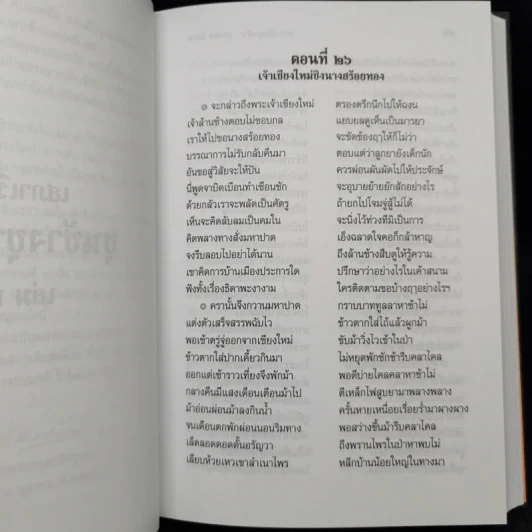 ตอนที่ ๒๖
เจ้าเชียงใหม่ชิงนางสร้อยทอง
๏ จะกล่าวถึงพระเจ้าเชียงใหม่ ตรองตรึกนึกไปให้ฉงน
เจ้าล้านช้างตอบไม่ชอบกล แยบยลดูเห็นเป็นมารยา
เราให้ไปขอนางสร้อยทอง จะขัดข้องฤๅให้ก็ไม่ว่า
บรรณาการไม่รับกลับคืนมา ตอบแต่ว่าลูกยายังเด็กนัก
อันขอสู่วิสัยจะให้ปัน ควรผ่อนผันผัดไปให้ประจักษ์
นี่พูดจาบิดเบือนทำเชือนชัก จะอุบายย้ายยักสักอย่างไร
ด้วยกลัวเราจะพลัดเป็นศัตรู ถ้ายกไปโจมจู่สู้ไม่ได้
เห็นจะคิดลับลมเป็นคมใน จะนิ่งไว้ท่วงทีมิเป็นการ
คิดพลางทางสั่งมหาปาด เอ็งฉลาดใจคอก็กล้าหาญ
จงรีบลอบไปอย่าได้นาน ถึงล้านช้างสืบดูให้รู้ความ
เขาคิดการบ้านเมืองประการใด ปรึกษาว่าอย่างไรในเค้าสนาม
ฟังทั้งเรื่องธิดาพะงางาม ใครติดตามขอบ้างฤๅอย่างไรฯ
๏ ครานั้นจึงกวานมหาปาด กราบบาททูลลาหาช้าไม่
แต่งตัวเสร็จสรรพฉับไว ข้าวตากใส่ไถ้แล้วผูกม้า
พอเช้าตรู่จู่ออกจากเชียงใหม่ ขับม้าวิ่งไวเข้าในป่า
ข้าวตากใส่ปากเคี้ยวกินมา ไม่หยุดพักชักช้ารีบคลาไคล
ออกแต่เช้าราวเที่ยงจึงพักม้า พอตีบ่ายไคลคลาหาช้าไม่
กลางคืนมีแสงเดือนเตือนม้าไป ตีเหล็กไฟสูบยามาพลางพลาง
ม้าอ่อนผ่อนม้าลงกินน้ำ ครั้นหายเหนื่อยเรื่อยร่ำมาผางผาง
จนเดือนตกพักผ่อนนอนริมทาง พอสว่างขึ้นม้ารีบคลาไคล
เล็ดลอดดอดดั้นอรัญวา ถึงพรานไพรในป่าหาพบไม่
เลียบห้วยเหวเขาลำเนาไพร หลีกบ้านน้อยใหญ่ในทางมา